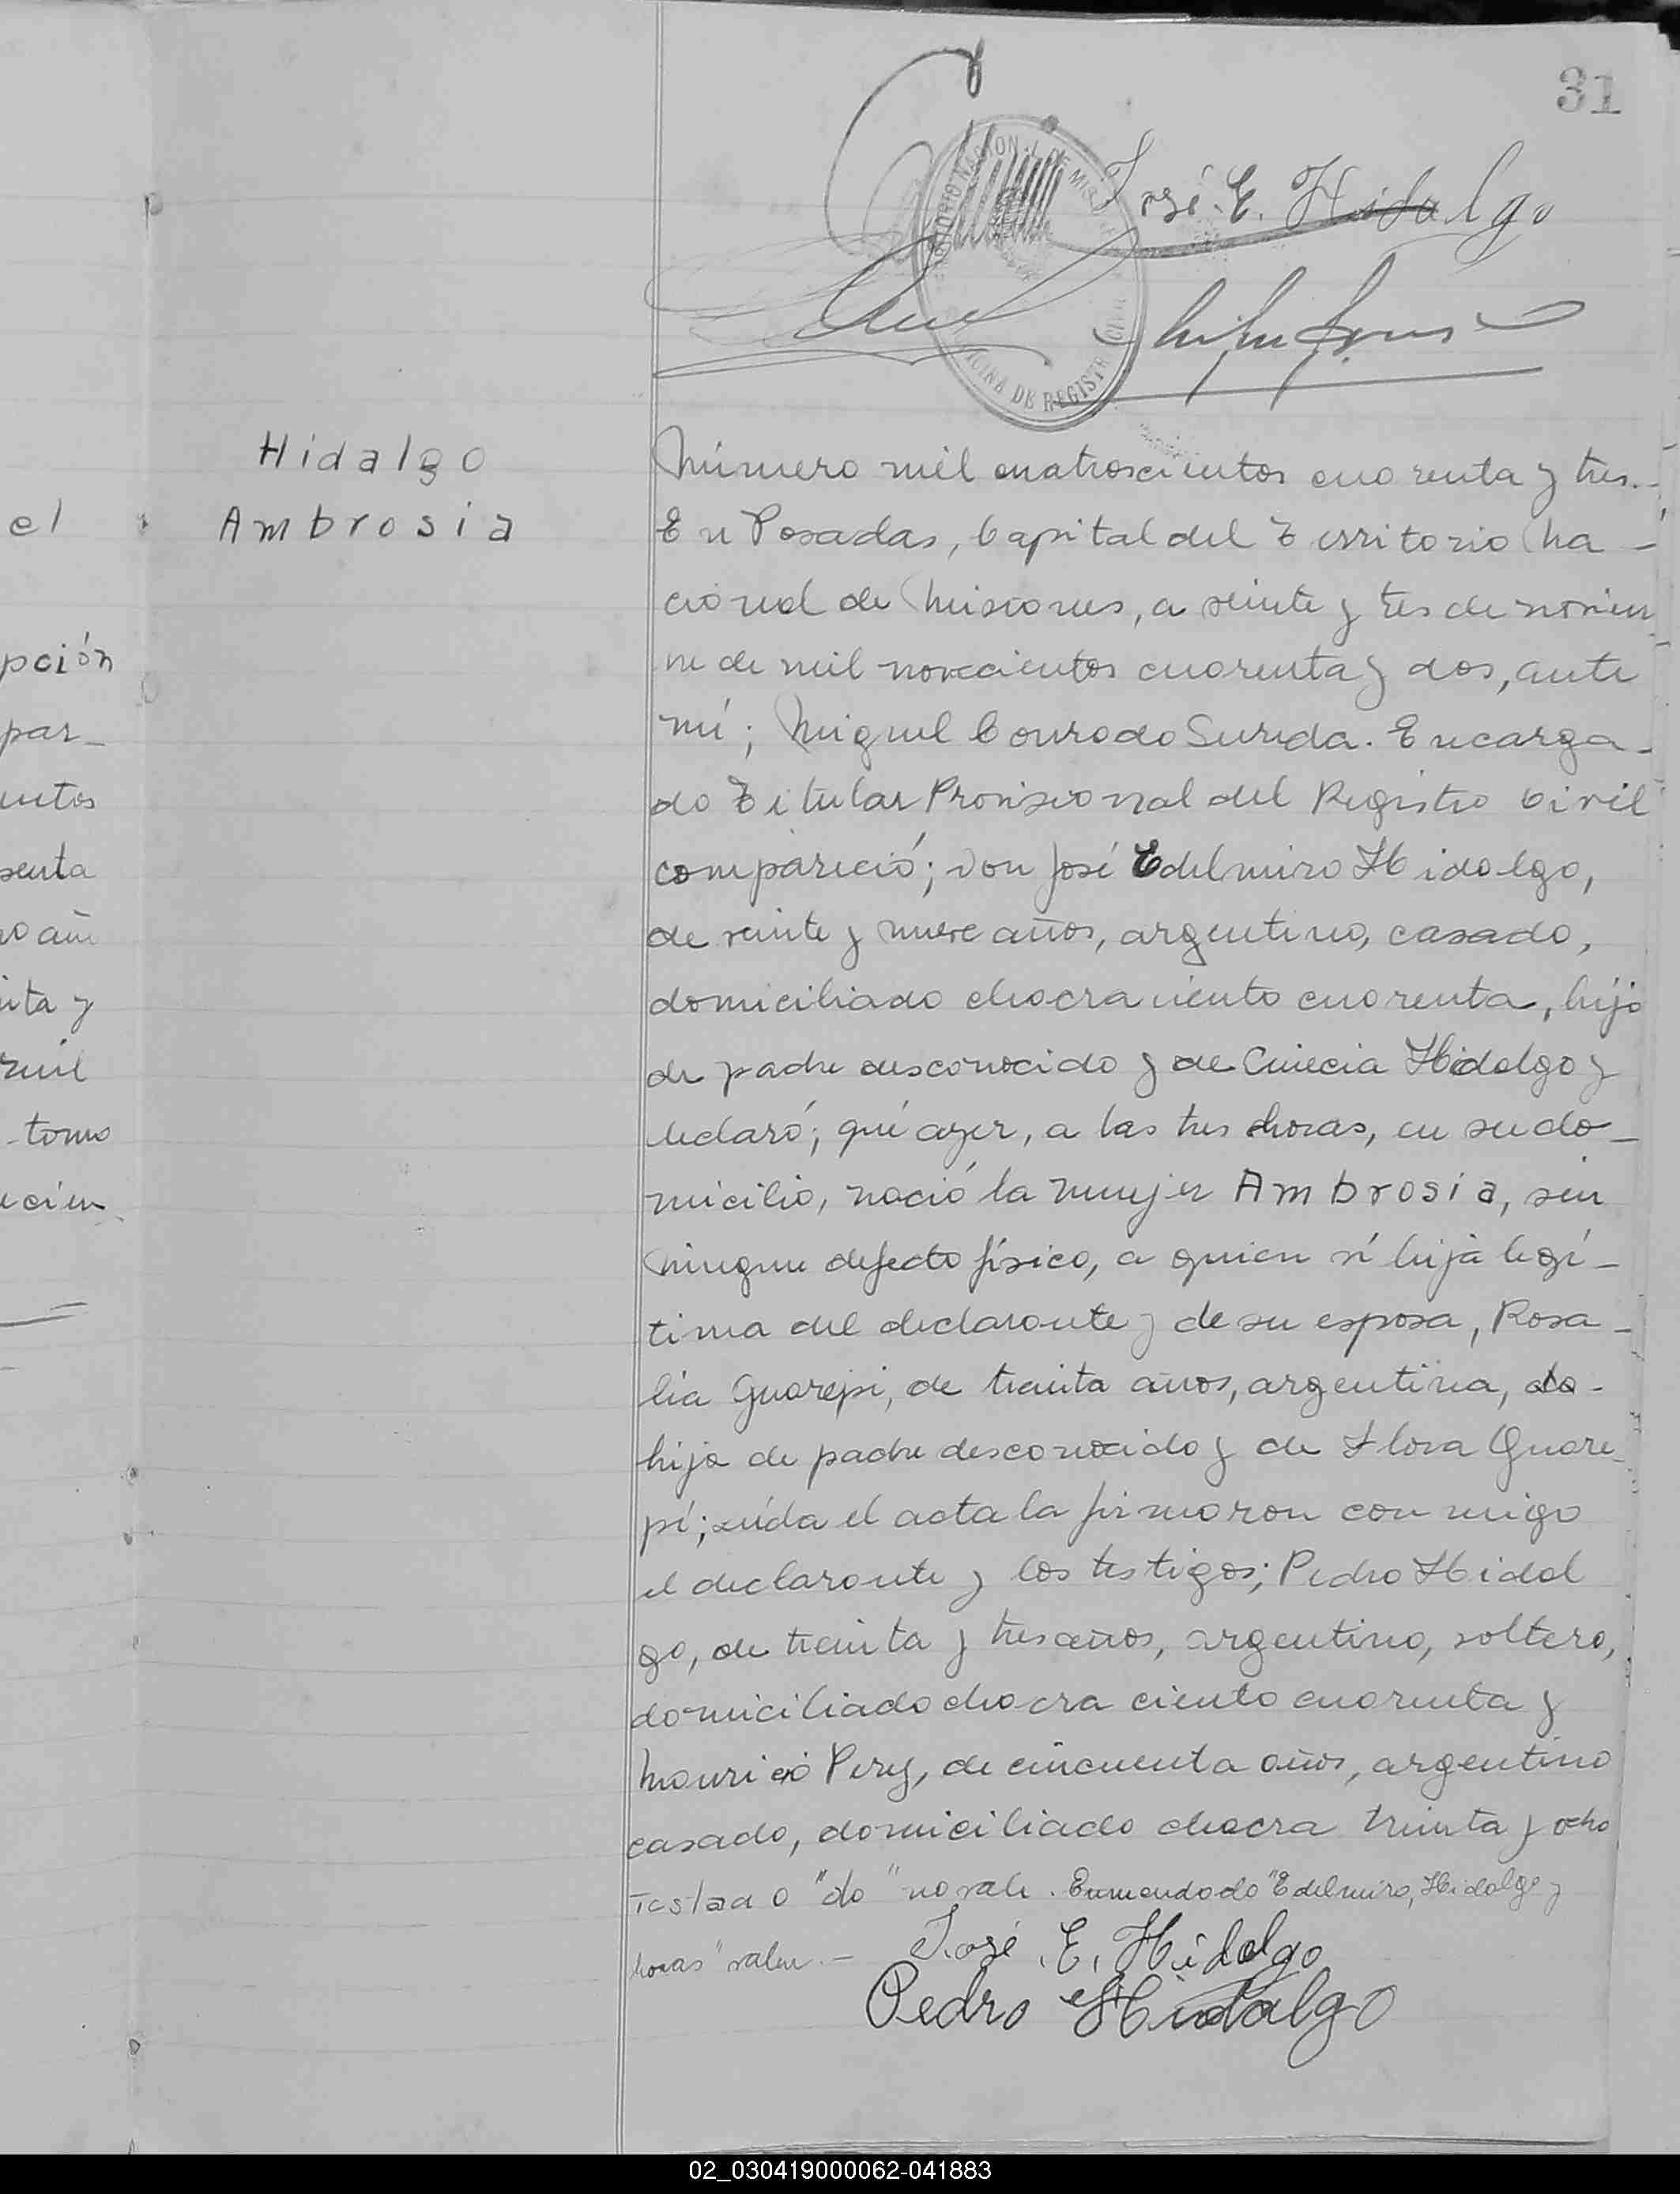 31
José E. Hidalgo
OFICINA DE REGISTRO CIVIL
Hidalgo
Ambrosia
el
pción
par_
entos
senta
nta y
mil
tomo
ecien
Número mil cuatroscientos cuarenta y tres.-
En Posadas, Capital del Territorio Na-
cional de Misiones, a veinte y tres de noviem
bre de mil novecientos cuarenta y dos, ante
mí; Miguel Conrado Sureda. Encarga-
do Titular Provisional del Registro Civil
compareció; Don José Edelmiro Hidalgo,
de veinte y nueve años, argentino, casado,
domiciliado chacra ciento cuarenta, hijo
de padre desconocido y de Hidalgo y
declaró; qué ayer, a las tres horas, en su do_
micilio, nació la mujer Ambrosia, sin
ningun defecto físico, a quien ví hija legí_
tima del declarante y de su esposa, Rosa_
lia Guarepi, de treinta años, argentina, do-
hija de padre desconocido y de Flora Guare_
pí; leída el acta la firmaron con migo
el declarante y los testigos; Pedro Hidal
go, de treinta y tres años, argentino, soltero,
domiciliado chacra ciento cuarenta y
Mauricio Perez, de cincuenta años, argentino
casado, domiciliado chacra treinta y ocho
Testado "do" no vale. Enmendado "Edelmiro, Hidalgo y
horas" valen.-
José E. Hidalgo
Pedro Hidalgo
02_030419000062-041883